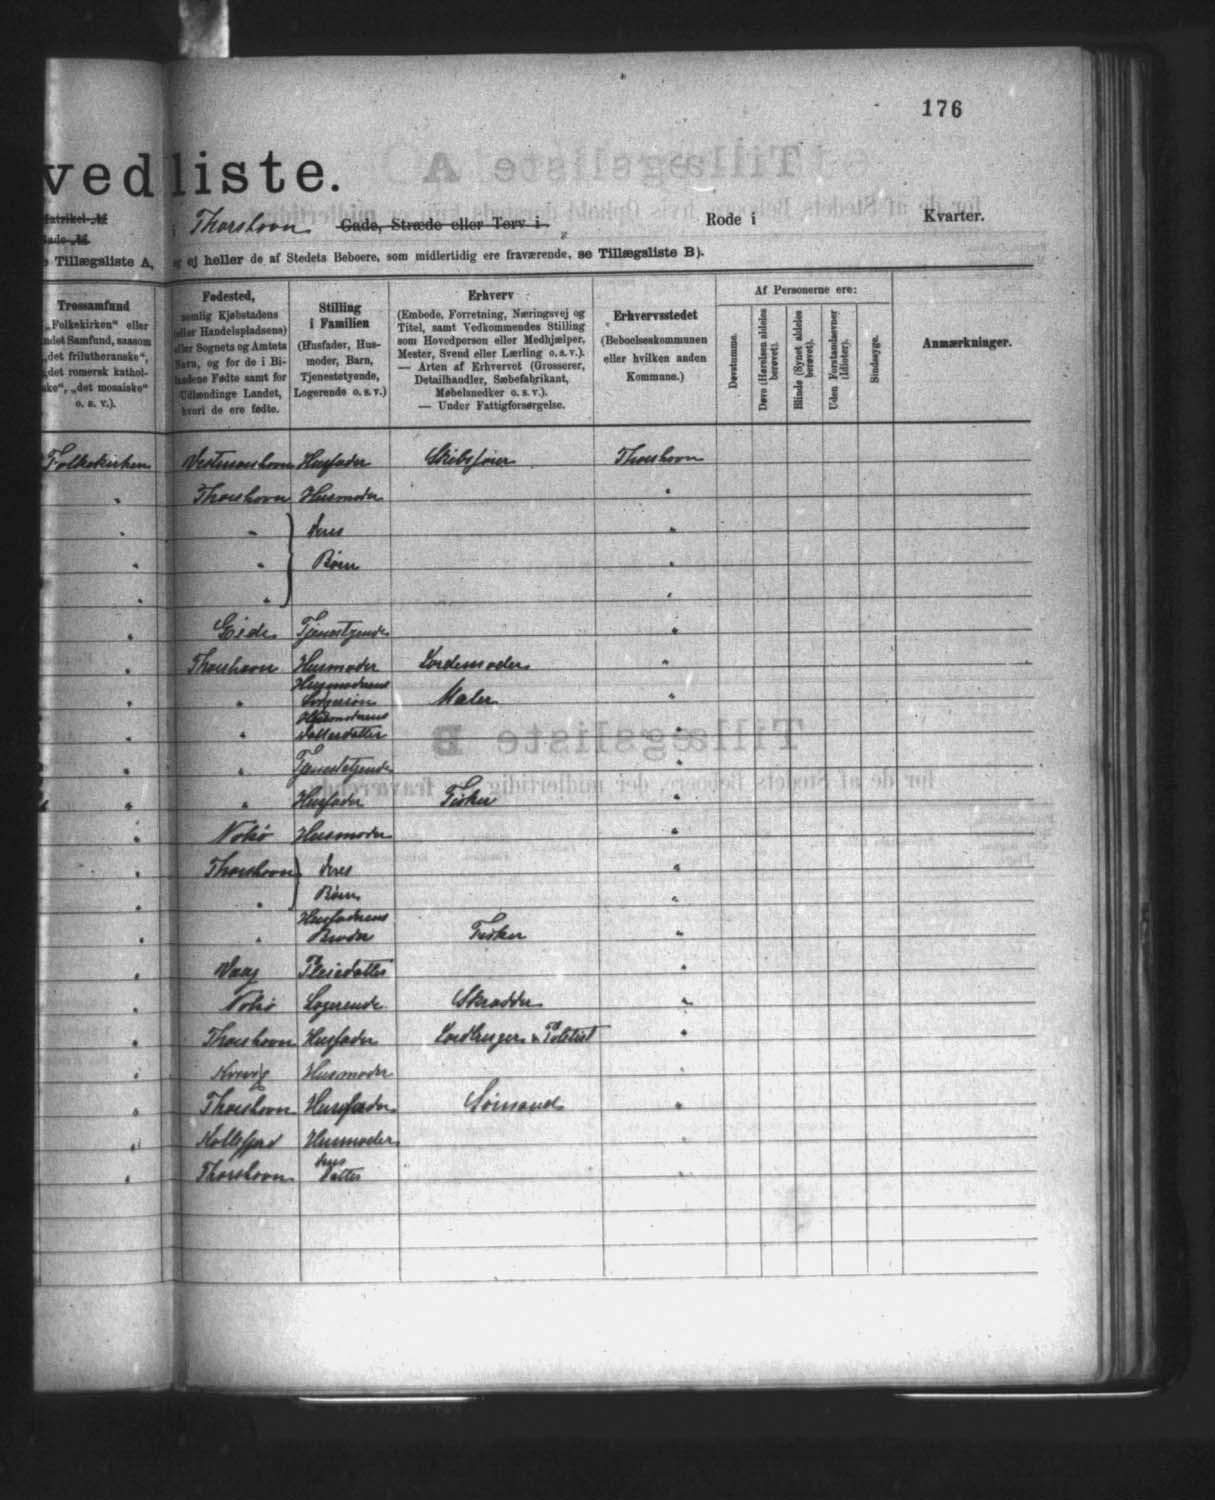 176
vedliste.
Matrikel-№
Gade-№
i Thorshavn Gade, Stræde eller Torv i Rode i Kvarter.
Tillægsliste A, og ej heller de af Stedets Beboere, som midlertidig ere fraværende, se Tillægsliste B).
Trossamfund
„Folkekirken" eller
andet Samfund, saasom
„det frilutheranske",
„det romersk kathol-
ske", „det mosaiske"
o. s. v.).
Fødested,
nemlig Kjøbstadens
(eller Handelspladsens)
eller Sognets og Amtets
Navn, og for de i Bi-
landene Fødte samt for
Udlændinge Landet,
hvori de ere fødte.
Stilling
i Familien
(Husfader, Hus-
moder, Barn,
Tjenestetyende,
Logerende o. s. v.)
Erhverv
(Embede, Forretning, Næringsvej og
Titel, samt Vedkommendes Stilling
som Hovedperson eller Medhjælper,
Mester, Svend eller Lærling o. s. v.).
— Arten af Erhvervet (Grosserer,
Detailhandler, Sæbefabrikant,
Møbelsnedker o. s. v.).
— Under Fattigforsørgelse.
Erhvervsstedet
(Beboelseskommunen
eller hvilken anden
Kommune.)
Af Personerne ere:
Døvstumme.
Døve (Hørelsen aldeles
berøvet).
Blinde (Synet aldeles
berøvet).
Uden Forstandsevner
(Idioter).
Sindssyge.
Anmærkninger.
Folkekirken Vestmanhavn Husfader Thorshavn
" Thorshavn Husmoder "
" " deres "
" " Børn "
" " "
" Eide Tjenestyende "
" Thorshavn Husmoder Jordemoder "
" " Husmoderens Maler "
" " Husmoderens Datterdatter "
" " Tjenestetyende "
" " Husfader Fisker "
" Nolsø Husmoder "
" Thorshavn deres "
" " Børn "
" " Husfaderens Broder Fisker "
" Vaag Pleiedatter "
" Nolsø Logerende Skrædder "
" Thorshavn Husfader "
" Kvivig Husmoder "
" Thorshavn Husfader Sømand "
" Kollefjord Husmoder "
" Thorshavn deres Datter "